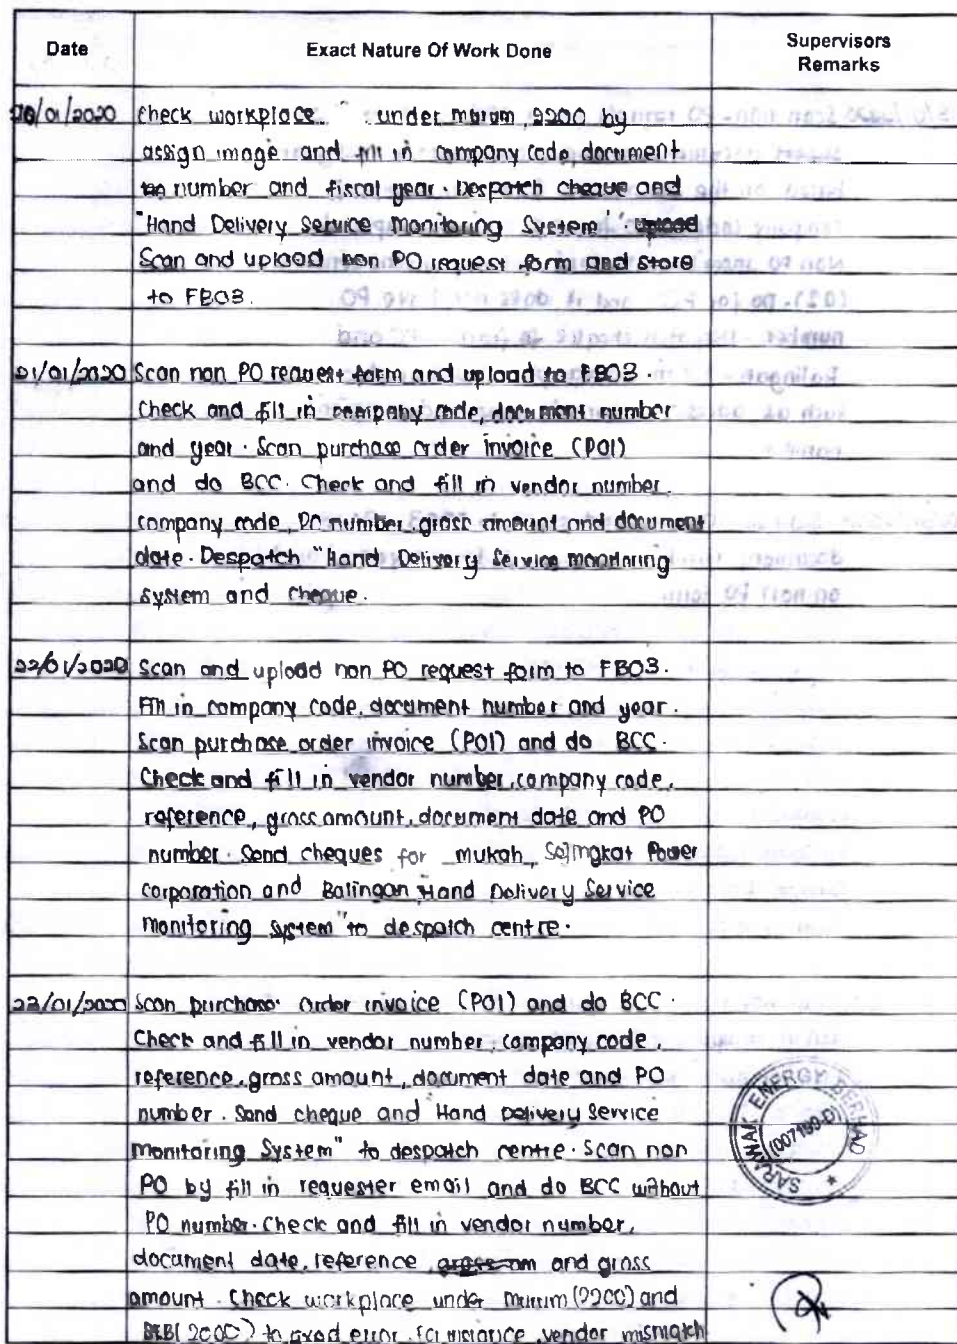 Date Exact Nature Of Work Done Supervisors Remarks
20/01/2020 Check workplace under murum, 2200 by
assign image and fill in company code, document
number and fiscal year. Despatch cheque and
"Hand Delivery Service Monitoring System". upload
Scan and upload non PO request form and store
to FB03.
21/01/2020 Scan non PO request form and upload to FB03.
Check and fill in company code, document number
and year. Scan purchase order invoice (POI)
and do BCC. Check and fill in vendor number,
company code, PO number, gross amount and document
date. Despatch "Hand Delivery Service monitoring
system and cheque.
22/01/2020 Scan and upload non PO request form to FB03.
Fill in company code, document number and year.
Scan purchase order invoice (POI) and do BCC.
Check and fill in vendor number, company code,
reference, gross amount, document date and PO
number. Send cheques for mukah, Sejingkat Power
corporation and Balingan, Hand Delivery Service
Monitoring system" to despatch centre.
23/01/2020 Scan purchase order invoice (POI) and do BCC.
Check and fill in vendor number, company code,
reference, gross amount, document date and PO
number. Send cheque and Hand Delivery Service
monitoring System" to despatch centre. Scan non
PO by fill in requester email and do BCC without
PO number. Check and fill in vendor number,
document date, reference gross am and gross
amount. Check workplace under murum (2200) and
SEB (2000) to avod error for instance, vendor mismatch
SARAWAK ENERGY BERHAD
(007199-D)